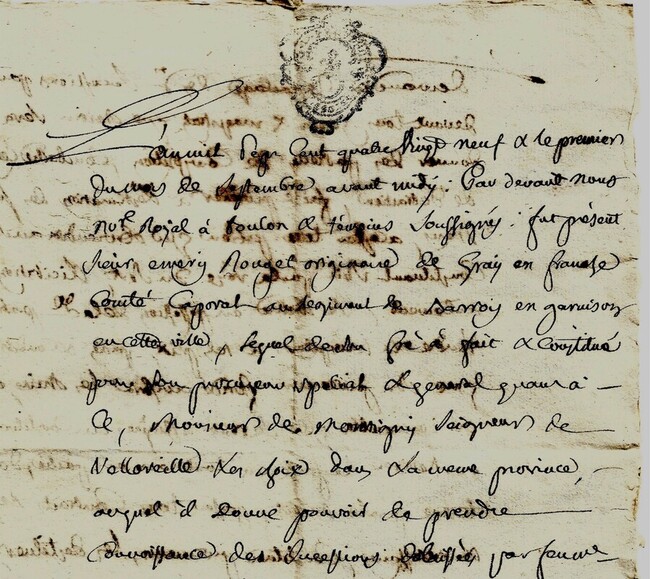 L'an mil Sept Cent quatre Vingt neuf & le premier
du mois de Septembre avant midy : Par devant nous
No.re Royal à Toulon & témoins Soussignés : fut présent
Sieur emery Rouget originaire de Gray en franche
Comté Caporal au Regiment de Barrois en garnison
en cette ville, lequel de son gré à fait & Constitué
pour Son procureur Spécial & general quant à
Ce, Monsieur de Montigny Seigneur de
dans la meme province,
auquel il donne pouvoir de prendre
Connoissance des Successions delaissées par feu